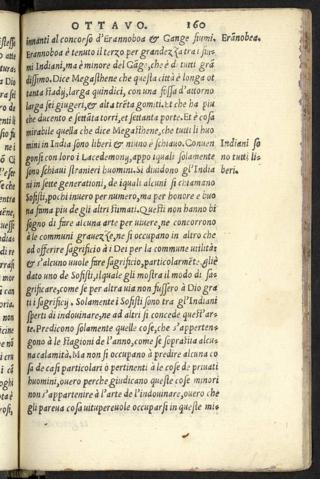 OTTAVO. 160
innanti al concorso d'Erannoboa & Gange fiumi.
Erannoboa è tenuto il terzo per grandezza tra i fiu-
mi Indiani, ma è minore del Gāge, che è di tutti grā
dissimo. Dice Megasthene che questa città è longa ot
tanta stadij, larga quindici, con una fossa d'attorno
larga sei giugeri, & alta trēta gomiti. et che ha piu
che ducento e settāta torri, et settanta porte. Et è cosa
mirabile quella che dice Megasthene, che tutti li huo
mini in India sono liberi & niuno è schiavo. Conuen
gonsi con loro i Lacedemony, appo iquali solamente
sono schiaui stranieri huomini. Si diuidono gl'India
ni in sette generationi, de iquali alcuni si chiamano
Sofisti, pochi inuero per numero, ma per honore e buo
na fama piu de gli altri stimati. Questi non hanno bi
sogno di fare alcuna arte per uiuere, ne concorrono
à le communi grauezze, ne si occupano in altro che
ad offerire sagrificio à i Dei per la commune utilità:
& s'alcuno uuole fare sagrificio, particolarmēte gliè
dato uno de Sofisti, il quale gli mostra il modo di sa-
grificare, come se per altra uia non fussero à Dio gra
ti i sagrificij. Solamente i Sofisti sono tra gl'Indiani
sperti di indouinare, ne ad altri si concede quest'ar-
te. Predicono solamente quelle cose, che s'apperten-
gono à le stagioni de l'anno, come se soprastia alcu-
na calamità. Ma non si occupano à predire alcuna co
sa de casi particolari ò pertinenti à le cose de priuati
huomini, ouero perche giudicano queste cose minori
non s'appartenere à l'arte de l'indouinare, ouero che
gli pareua cosa uitupereuole occuparsi in queste mi-
Erānoboa.
Indiani so
no tutti li-
beri.